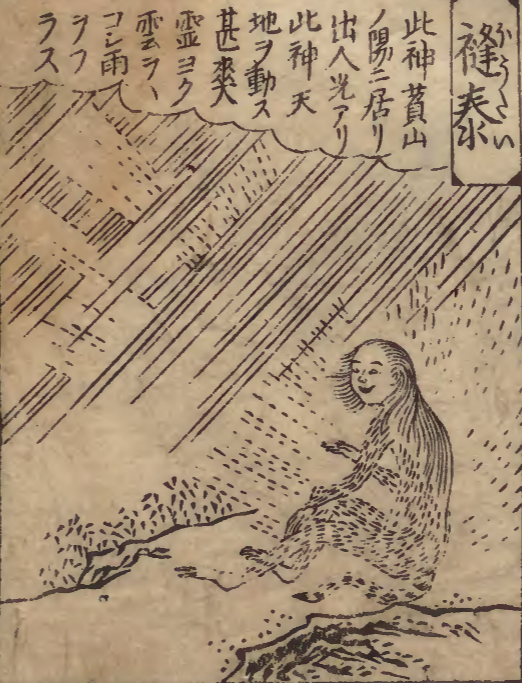 泰
ほうたい
此神萯山
ノ陽ニ居リ
出入光アリ
此神天
地ヲ動ス
甚爽
霊ヨク
雲ヲヽ
コシ雨
ヲフ
ラス